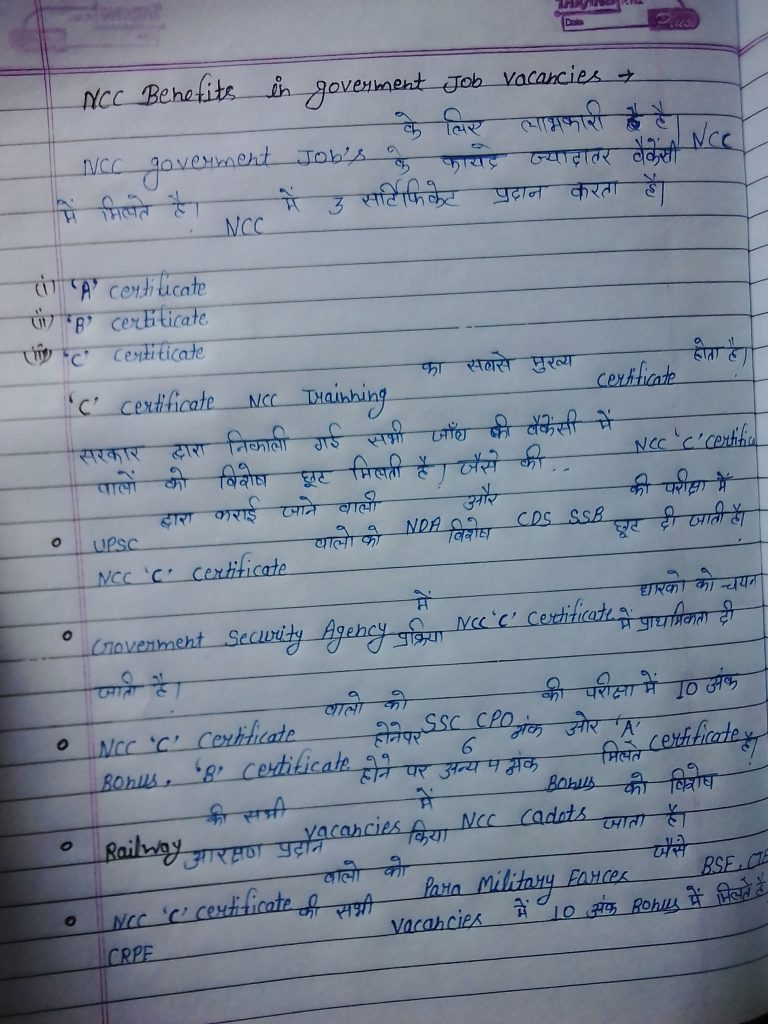 Date
Plus
NCC Benefits in goverment Job vacancies →
NCC goverment Job's के लिए लाभकारी है है। NCC
के फायदे ज्यादातर वैकेंसी में मिलते है। NCC में 3 सर्टिफिकेट प्रदान करता है।
(i) 'A' certificate
(ii) 'B' certificate
(iii) 'C' certificate
'C' certificate NCC Trainning का सबसे मुख्य certificate होता है।
सरकार द्वारा निकाली गई सभी जॉब की वैकेंसी में NCC 'C' certifica
वालों को विशेष छूट मिलती है। जैसे की...
UPSC द्वारा कराई जाने वाली NDA और CDS SSB की परीक्षा में
NCC 'C' certificate वालो को विशेष छूट दी जाती है।
Goverment Security Agency में NCC 'C' Certificate धारको को चयन
प्रक्रिया में प्राथमिकता दी
जाती है।
NCC 'C' Certificate वालो को SSC CPO की परीक्षा में 10 अंक
Bonus, 'B' Certificate होनेपर 6 अंक और 'A' certificate
होने पर अन्य 4 अंक Bonus मिलते है।
Railway की सभी vacancies में NCC Cadots को विशेष
आरक्षण प्रदान किया जाता है।
NCC 'C' certificate वालो को Para Military Forces जैसे BSF,
CRPF की सभी vacancies में 10 अंक Bonus में मिलते है